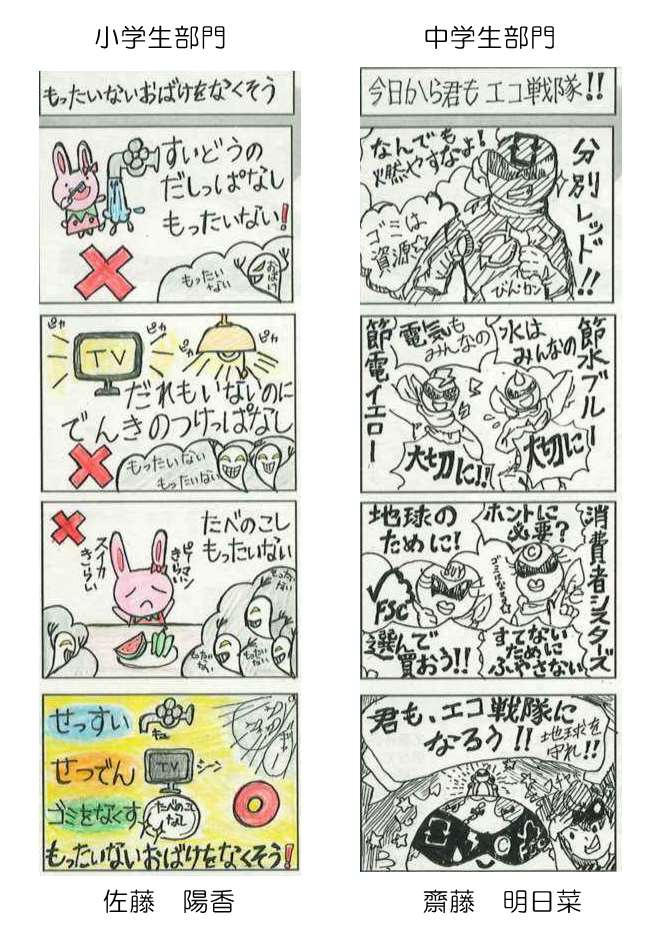 小学生部門
もったいないおばけをなくそう
すいどうの
だしっぱなし
もったいない!
もったい
ない
おばけ
ピカ
ピカ
ピカ
ピカ
TV
だれもいないのに
でんきのつけっぱなし
もったいない
もったいない
たべのこし
もったいない
ピーマン
きらい
スイカ
きらい
もったい
ない
もったい
ない
もったい
ない
せっすい
キュ
せつでん
TV
シーン
ゴミをなくす
たべのこし
なし
もったいないおばけをなくそう!
佐藤 陽香
中学生部門
今日から君もエコ戦隊!!
分別レッド!!
なんでも
燃やすなよ!
ゴミは
資源☆
びんカン
節水ブルー
水は
みんなの
大切に
電気も
みんなの
大切に!!
節電イエロー
消費者シスターズ
ホントに
必要?
地球の
ために!
FSC
BUY
選んで
買おう!!
すてない
ために
ふやさない
君も、エコ戦隊に
なろう!!
地球を
守れ!!
齋藤 明日菜